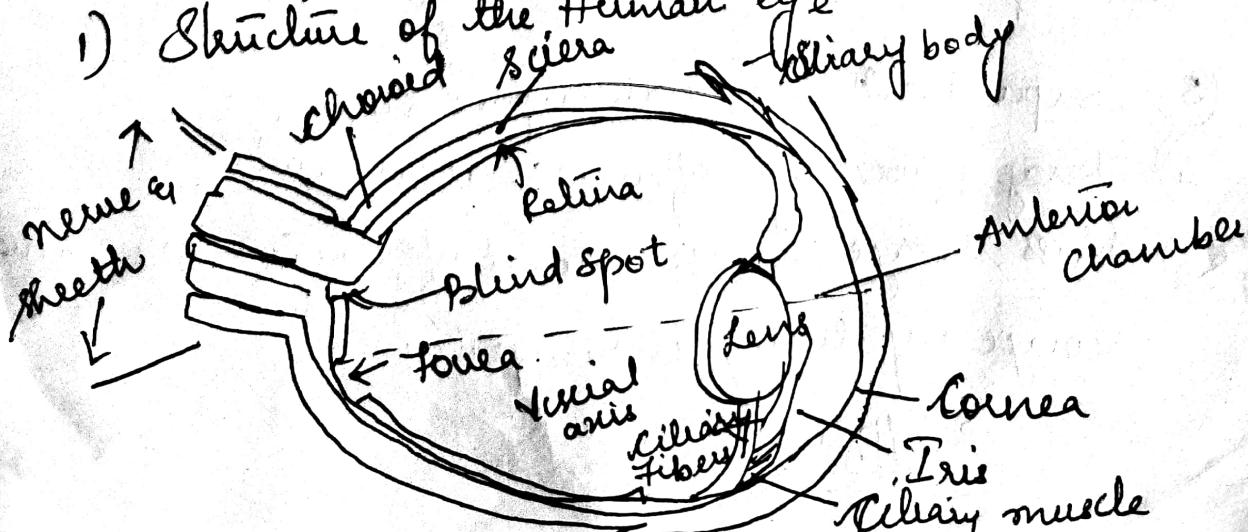 1) Structure of the Human eye
Choroid
Sclera
Ciliary body
Nerve &
sheeth
Retina
Anterior
Chamber
Blind Spot
Lens
Fovea
Visual
axis
Ciliary
Fibers
Cornea
Iris
Ciliary muscle